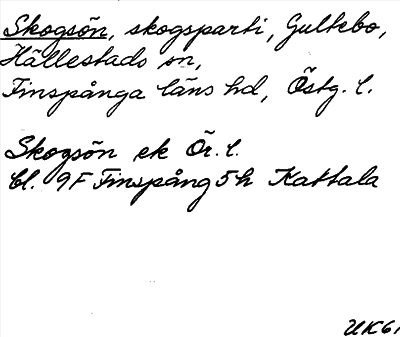 Skogsön, skogsparti, Gultebo,
Hällestads sn,
Finspånga läns hd, Östg. l.
Skogsön ek Ör. l.
Bl. 9F Finspång 5h Kattala
UK61